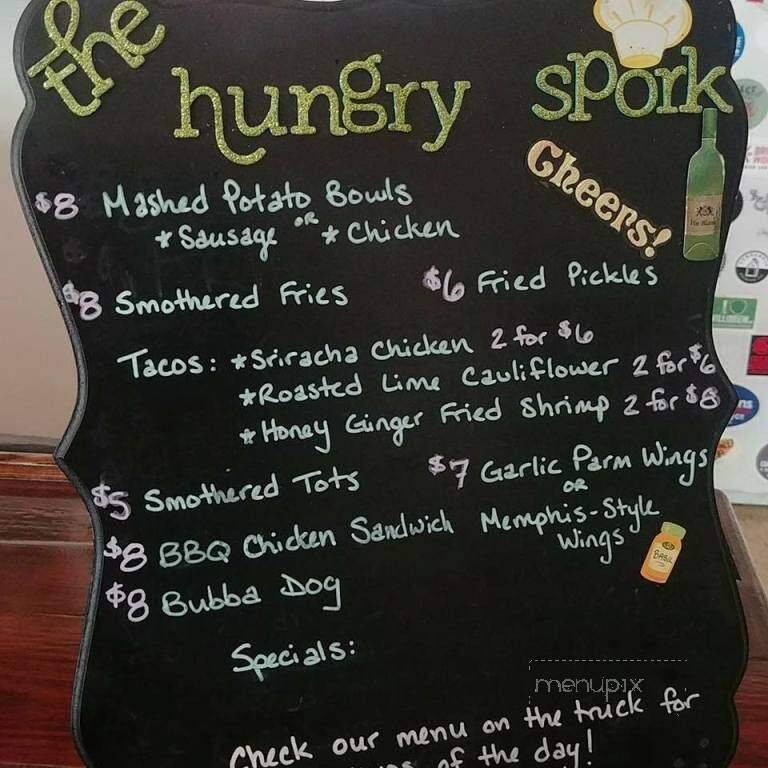 the hungry spork
Cheers!
$8 Mashed Potato Bowls
* Sausage OR * Chicken
$8 Smothered Fries
$6 Fried Pickles
Tacos: * Sriracha Chicken 2 for $6
* Roasted Lime Cauliflower 2 for $6
* Honey Ginger Fried Shrimp 2 for $8
$5 Smothered Tots
$7 Garlic Parm Wings
OR
Memphis-Style
Wings
BASIL
$8 BBQ Chicken Sandwich
$8 Bubba Dog
Specials:
menupix
Check our menu on the truck for
of the day!